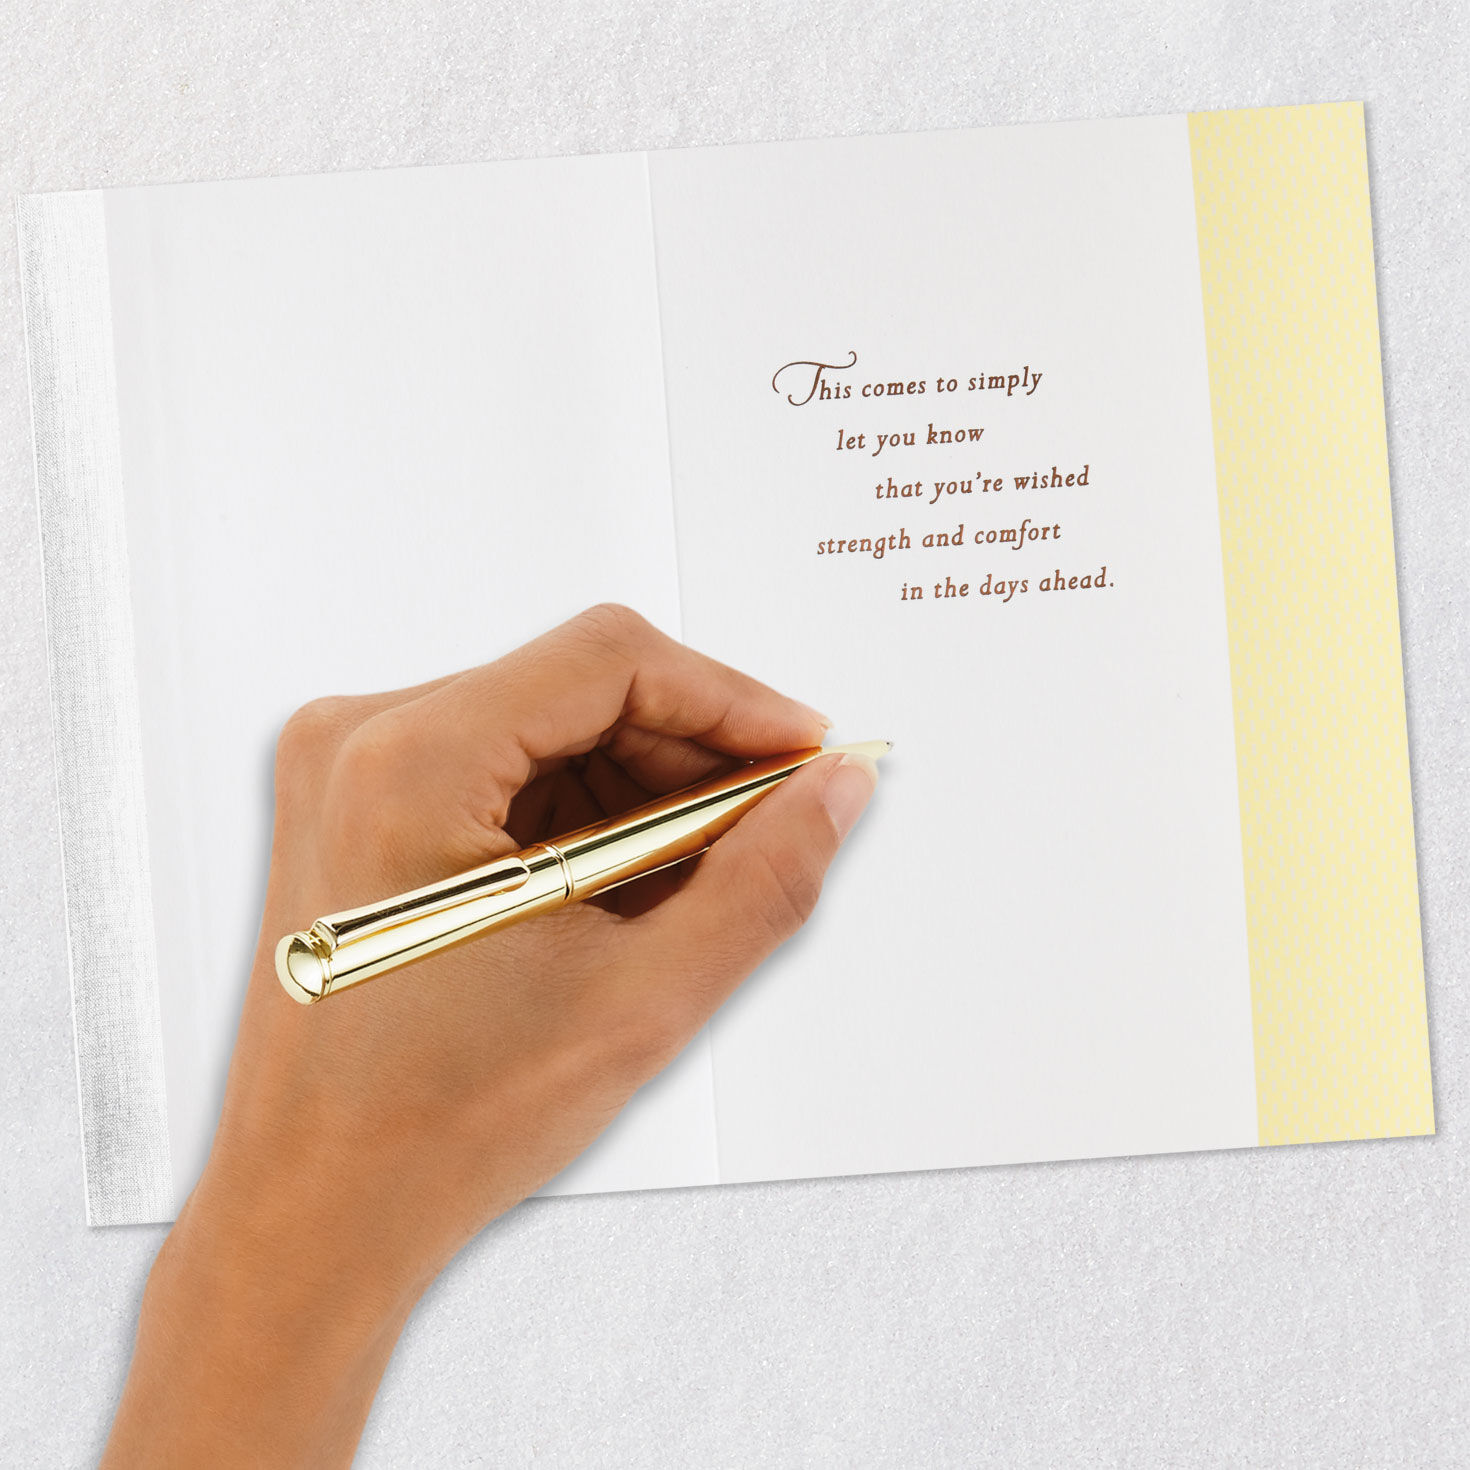 This comes to simply
let you know
that you're wished
strength and comfort
in the days ahead.